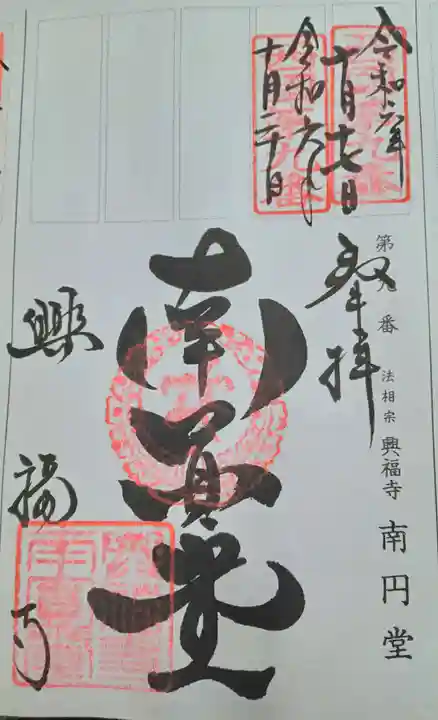 令和六年
十月十七日
令和六年
十月二十日
第九番 法相宗 興福寺 南円堂
奉拝
南円堂
興福寺